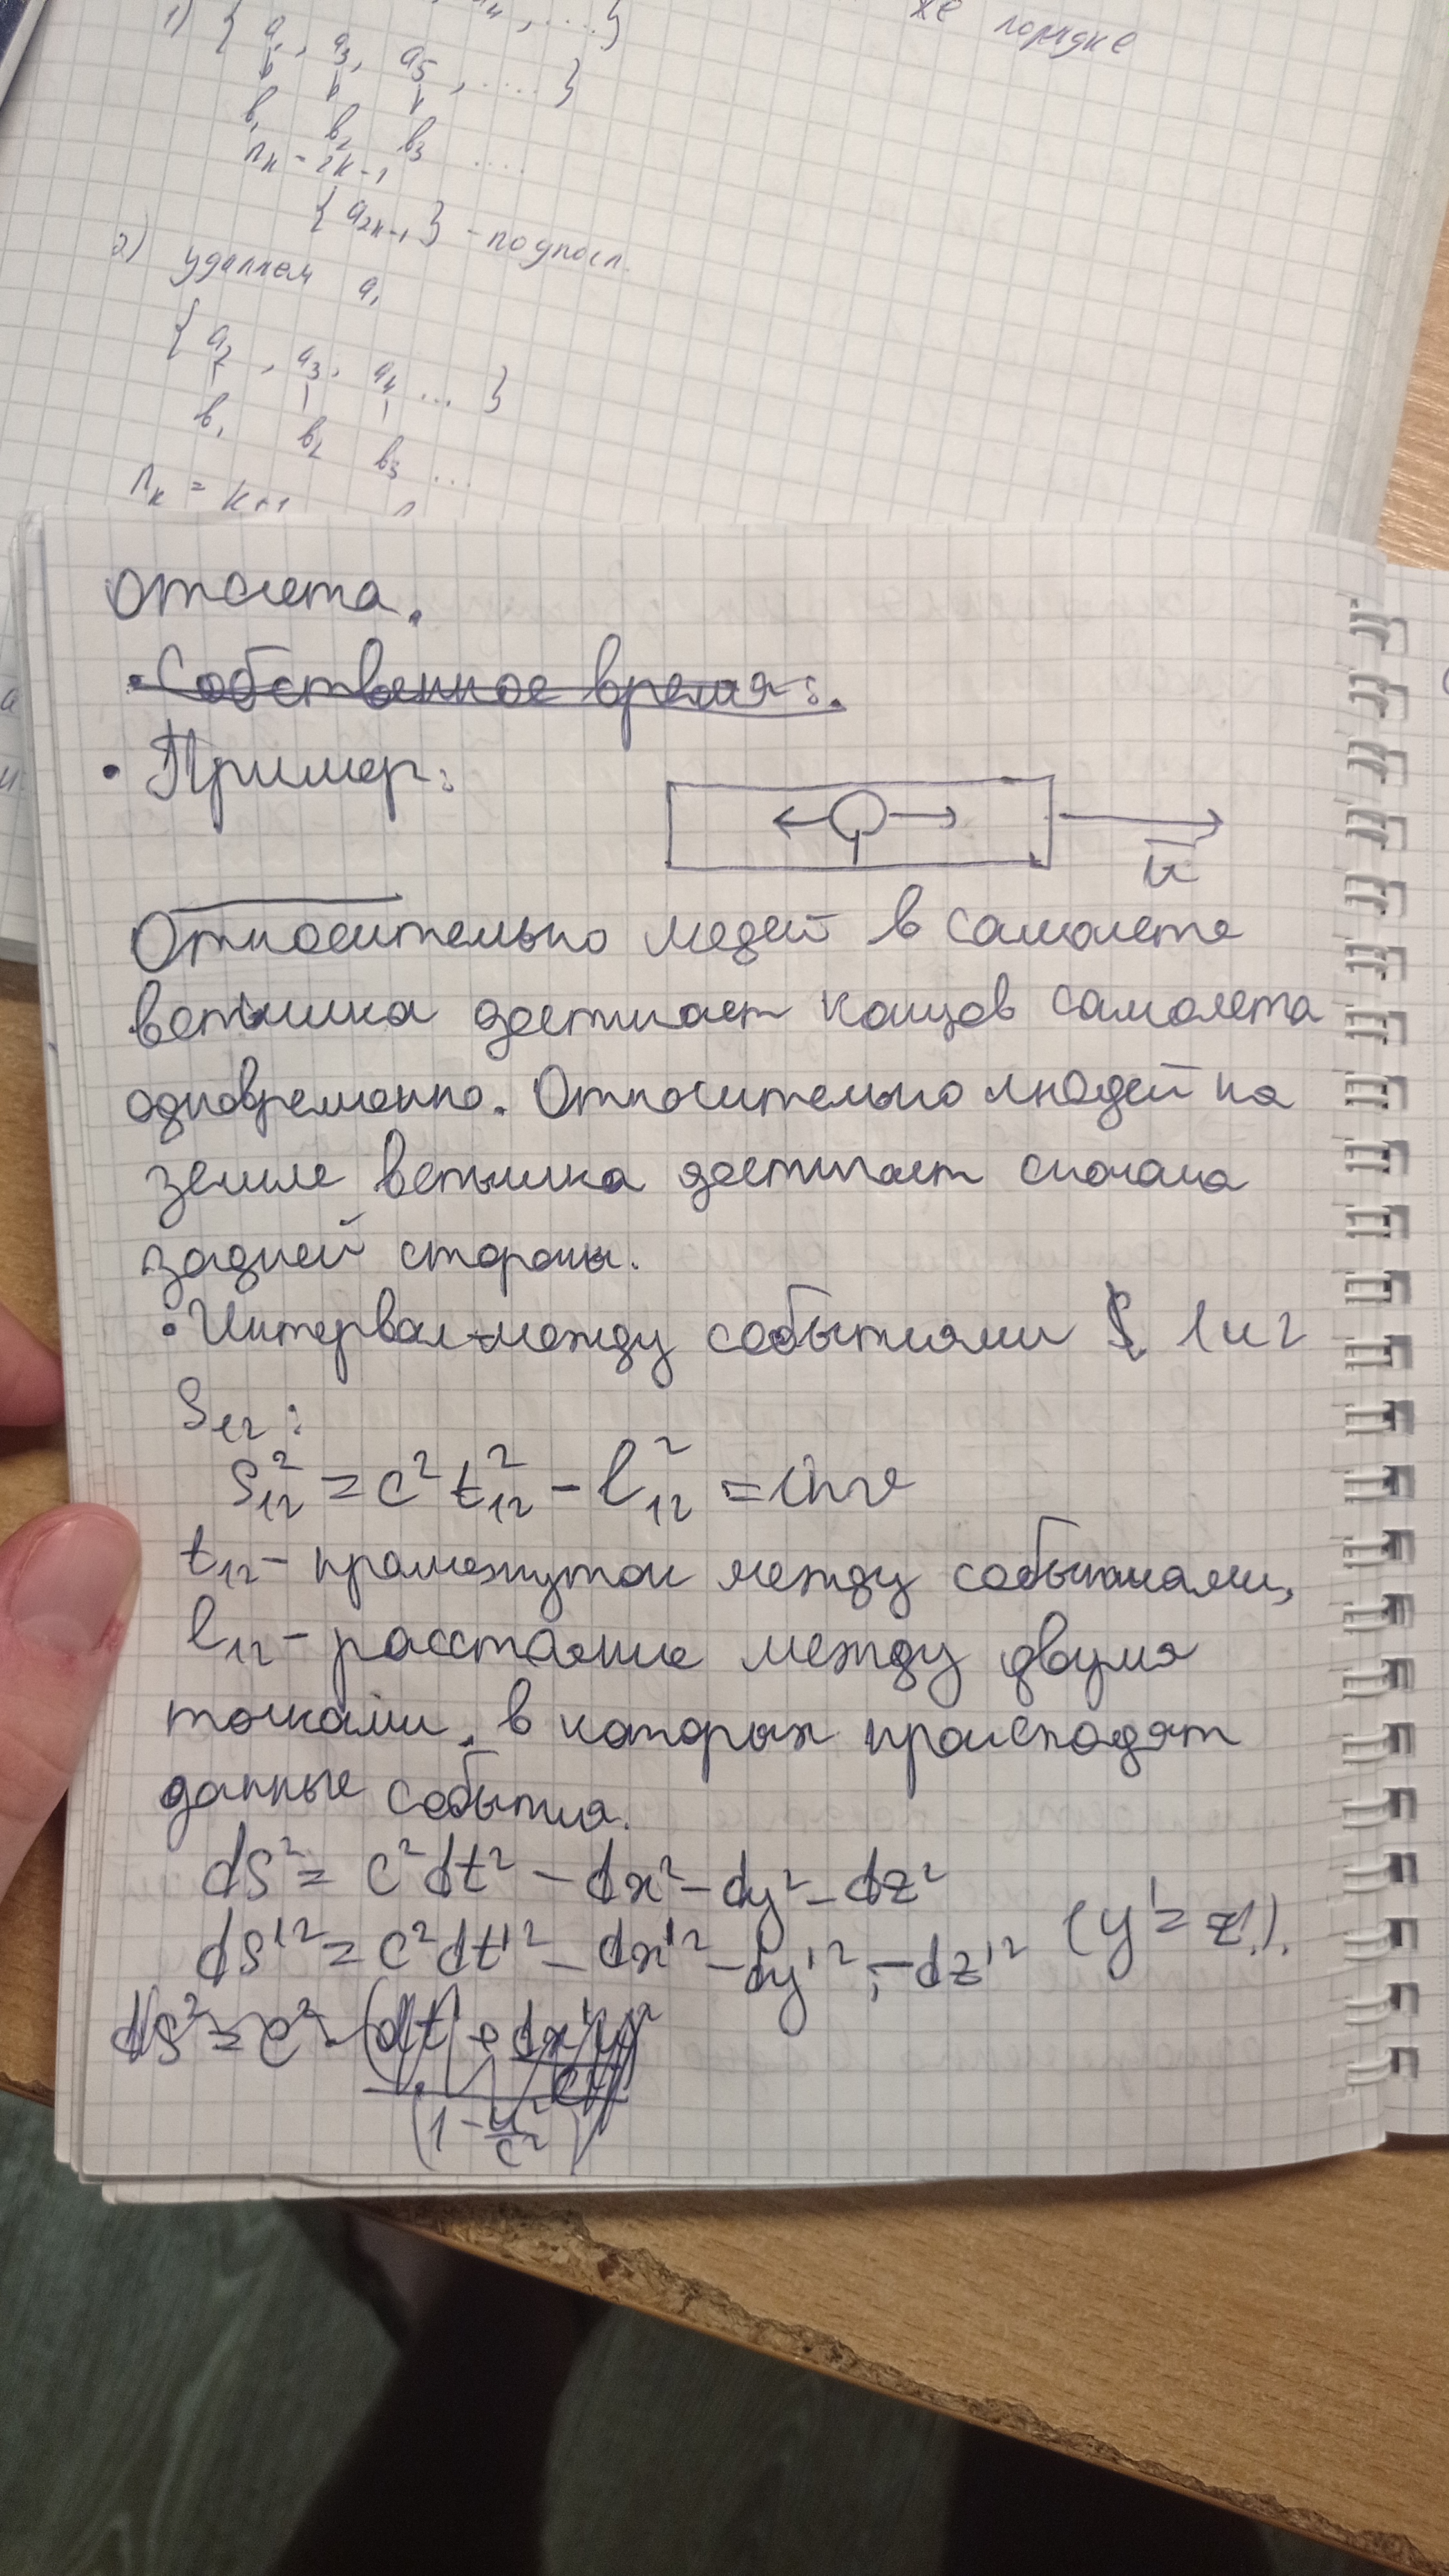 же порядке
1) { a₁, a₃, a₅, .... }
в₁ в₂ в₃ ....
nк = 2к-1
{ a₂к₋₁ } - подпосл.
2) удаляем a₁
{ a₂, a₃, a₄ ... }
в₁ в₂ в₃ ...
nк = к+1
отсчета.
• Собственное время:.
• Пример:
u
Относительно людей в самолете
вспышка достигает концов самолета
одновременно. Относительно людей на
земле вспышка достигает сначала
задней стороны.
• Интервал между событиями 1 и 2
S₁₂:
S₁₂² = c² t₁₂² - l₁₂² = inv
t₁₂ - промежуток между событиями,
l₁₂ - расстояние между двумя
точками, в которых происходят
данные события.
ds² = c²dt² - dx² - dy² - dz²
ds'² = c²dt'² - dx'² - dy'² - dz'² (y' = z').
ds² = c² · (dt' + dx'u
(1 - u²/c²)